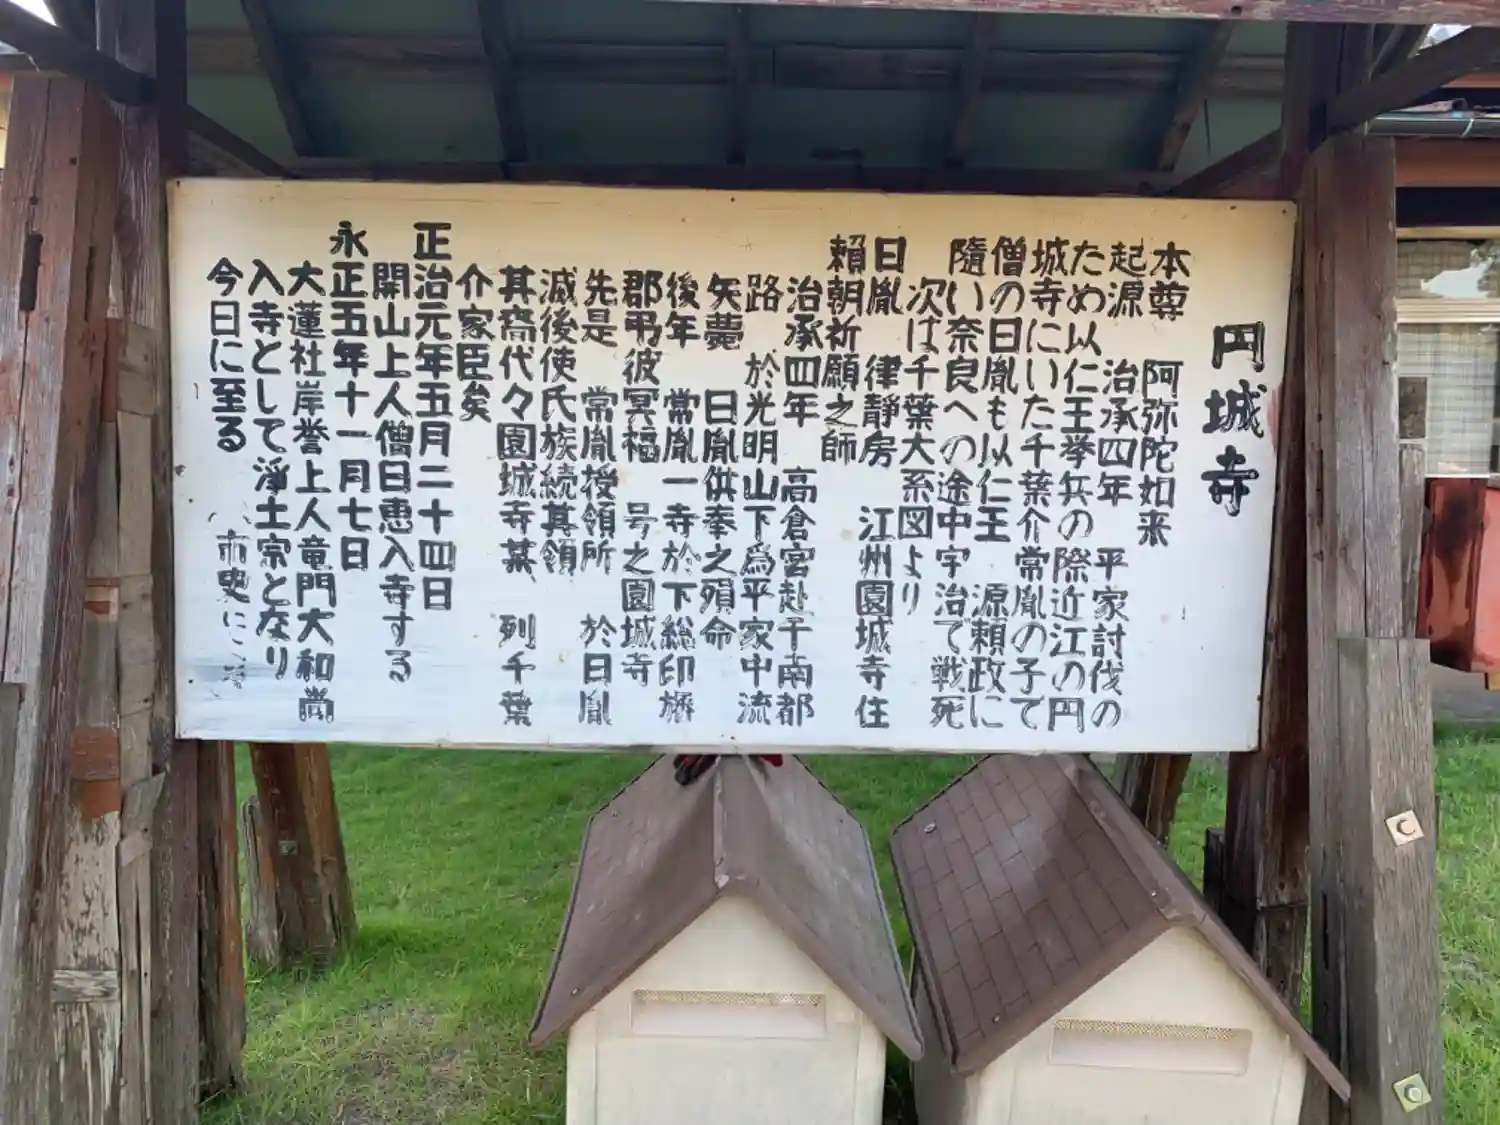 円城寺
本尊 阿弥陀如来
起源 治承四年 平家討伐の
ため以仁王挙兵の際近江の円
城寺にいた千葉介常胤の子て
僧の日胤も以仁王 源頼政に
隨い奈良への途中宇治て戦死
次は千葉大系図より
日胤 律静房 江州園城寺住
頼朝祈願之師
治承四年 高倉宮赴于南都
路 於光明山下為平家中流
矢薨 日胤供奉之殞命
後年 常胤一寺於下総印旛
郡弔彼冥福 号之園城寺
先是 常胤授領所 於日胤
滅後使氏族続其領
其裔代々園城寺某 列千葉
介家臣矣
正治元年五月二十四日
開山上人僧日恵入寺する
永正五年十一月七日
大蓮社岸誉上人竜門大和尚
入寺として浄土宗となり
今日に至る 市史に